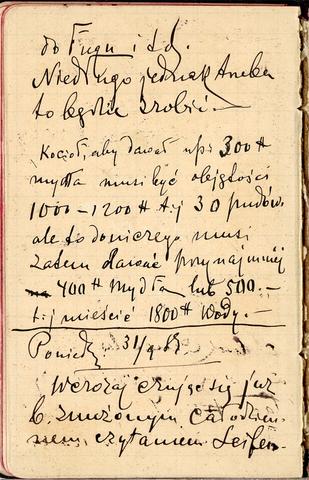 do Fugu i t.d.
Niedługo jednak trzeba
to będzie zrobić. —
Kocioł, aby dawał np. 300 ℔
mydła musi być objętości
1000 – 1200 ℔ t.j 30 pudów.
ale to do niczego musi
zatem dawać przynajmniej
400 ℔ mydła lub 500. —
t.j mieścić 1800 ℔ wody. —
Poniedz. 31/
Wczoraj czując się już
b. znużonym całodzien-
nem czytaniem Seifen-